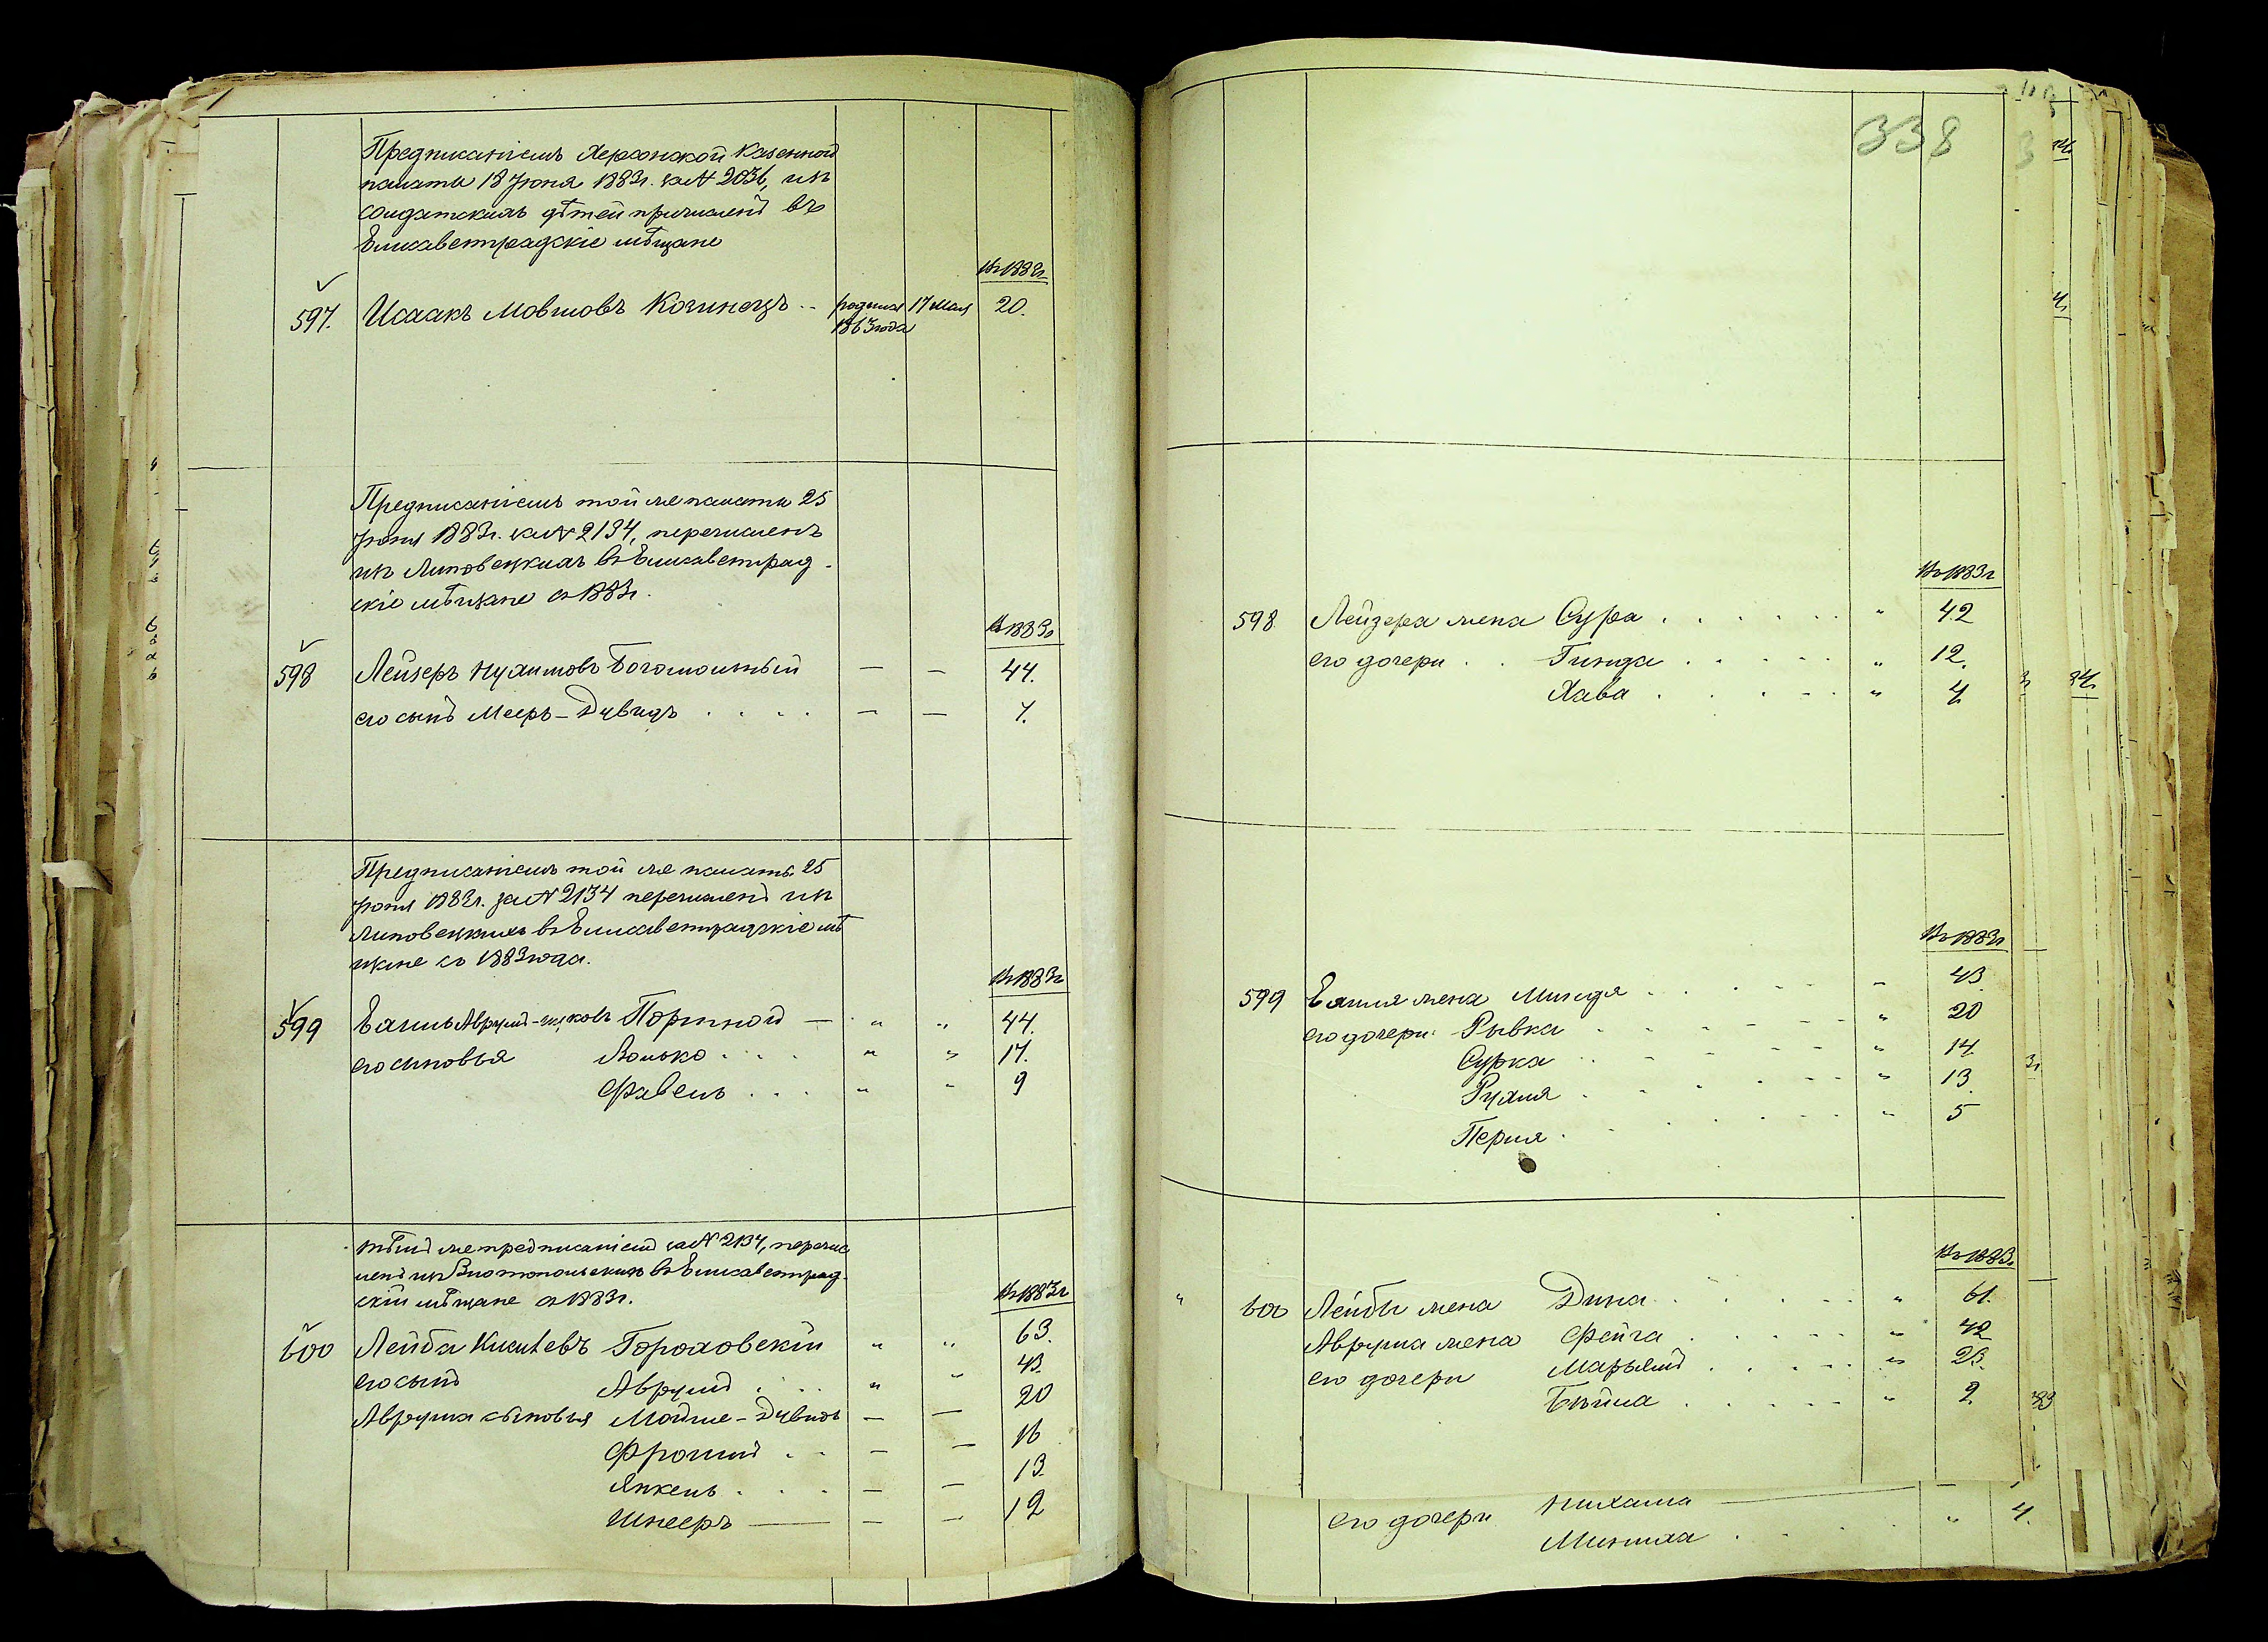 Предписаніемъ Херсонской Казенной
палаты 18 Іюня 1883г. за № 2036, изъ
солдатскихъ дѣтей причисленъ въ
Елисаветградскіе мѣщане
Въ 1883г
597. Исаакъ Мовшовъ Кочинецъ родился 17 Мая 20.
1863 года
Предписаніемъ той же палаты 25
Іюня 1883г. за № 2134, перечисленъ
изъ Липовецкихъ въ Елисаветград-
скіе мѣщане съ 1883г.
Въ 1883г
598 Лейзеръ Нухимовъ Богомольный — — 44.
его сынъ Мееръ-Дувидъ . . . . — — 7.
Предписаніемъ той же палаты 25
Іюня 1883г. за № 2134 перечисленъ изъ
Липовецкихъ въ Елисаветградскіе мѣ
щане съ 1883 года.
Въ 1883г
599 Врумъ- Портной — " " 44.
его сыновья Волько . . . . " " 17.
Фавель . . . " " 9
тѣмъ же предписаніемъ за № 2134, перечис
ленъ изъ въ Елисаветград-
скіи мѣщане съ 1883г.
Въ 1883г
600 Лейба Гороховскій " " 63.
его сынъ Аврумъ . . . . " " 43.
Аврума сыновья Мойше-Дувидъ — — 20
Фроимъ . . — — 16
Янкель . . . . — — 13.
Шнееръ — — — 12
338
Въ 1883г
598 Лейзера жена Сура . . . . . . " 42
его дочери . . Гинда . . . . . " 12.
Хава . . . . . " 4
Въ 1883г
599 жена Минця . . . . . " 43
его дочери Рывка . . . . . . " 20
Сурка . . . . . . " 14
Рухля . . . . . . " 13.
Перля . . . . . . " 5
Въ 1883г
" 600 Лейбы жена Дина . . . . . " 61.
Аврума жена Фейга . . . . . " 42
его дочери Марьямъ . . . . . " 23.
Бейла . . . . . " 2.
его дочери
" 4.